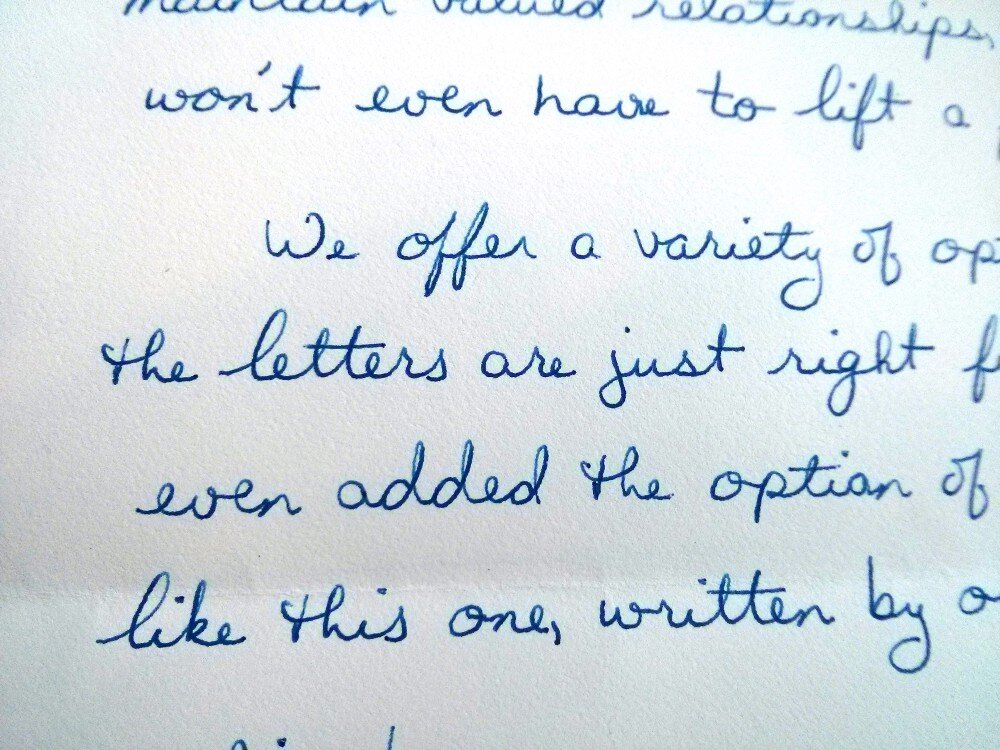 maintain valued relationships,
won't even have to lift a
We offer a variety of op
the letters are just right f
even added the option of
like this one, written by o